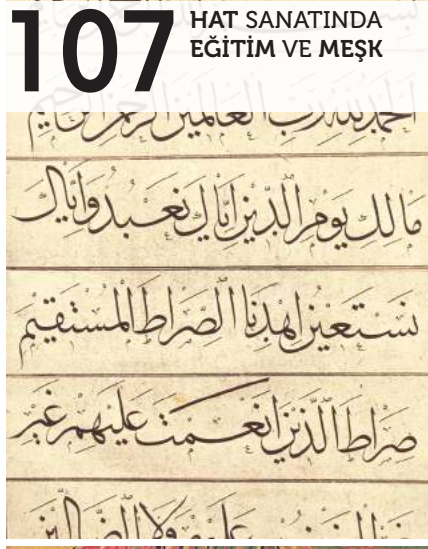 107
HAT SANATINDA
EĞİTİM VE MEŞK
الحمد لله رب العالمين الرحمن الرحيم
مالك يوم الدين اياك نعبد واياك
نستعين اهدنا الصراط المستقيم
صراط الذين انعمت عليهم غير